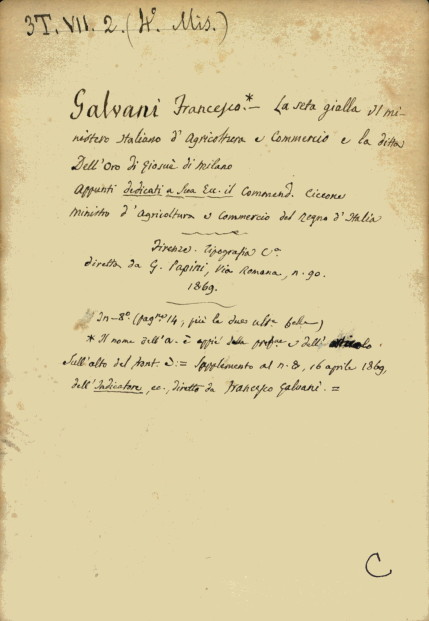 3T. VII. 2. (4º. Mis.)
Galvani Francesco.*— La seta gialla il mi-
nistero italiano d'Agricoltura e Commercio e la ditta
Dell'Oro di Giosuè di Milano
Appunti dedicati a Sua Ecc. il Commend. Ciccone
ministro d'Agricoltura e Commercio del Regno d'Italia
Firenze. Tipografia Cª
diretta da G. Papini, Via Romana, n. 90.
1869.
In-8º. (pag.ne 14; più la
* Il nome dell'a. è appiè della e dell'
Sull'alto del front. è := Supplemento al n. 8, 16 aprile 1869,
dell'Indicatore, ec., diretto da Francesco Galvani. =
C